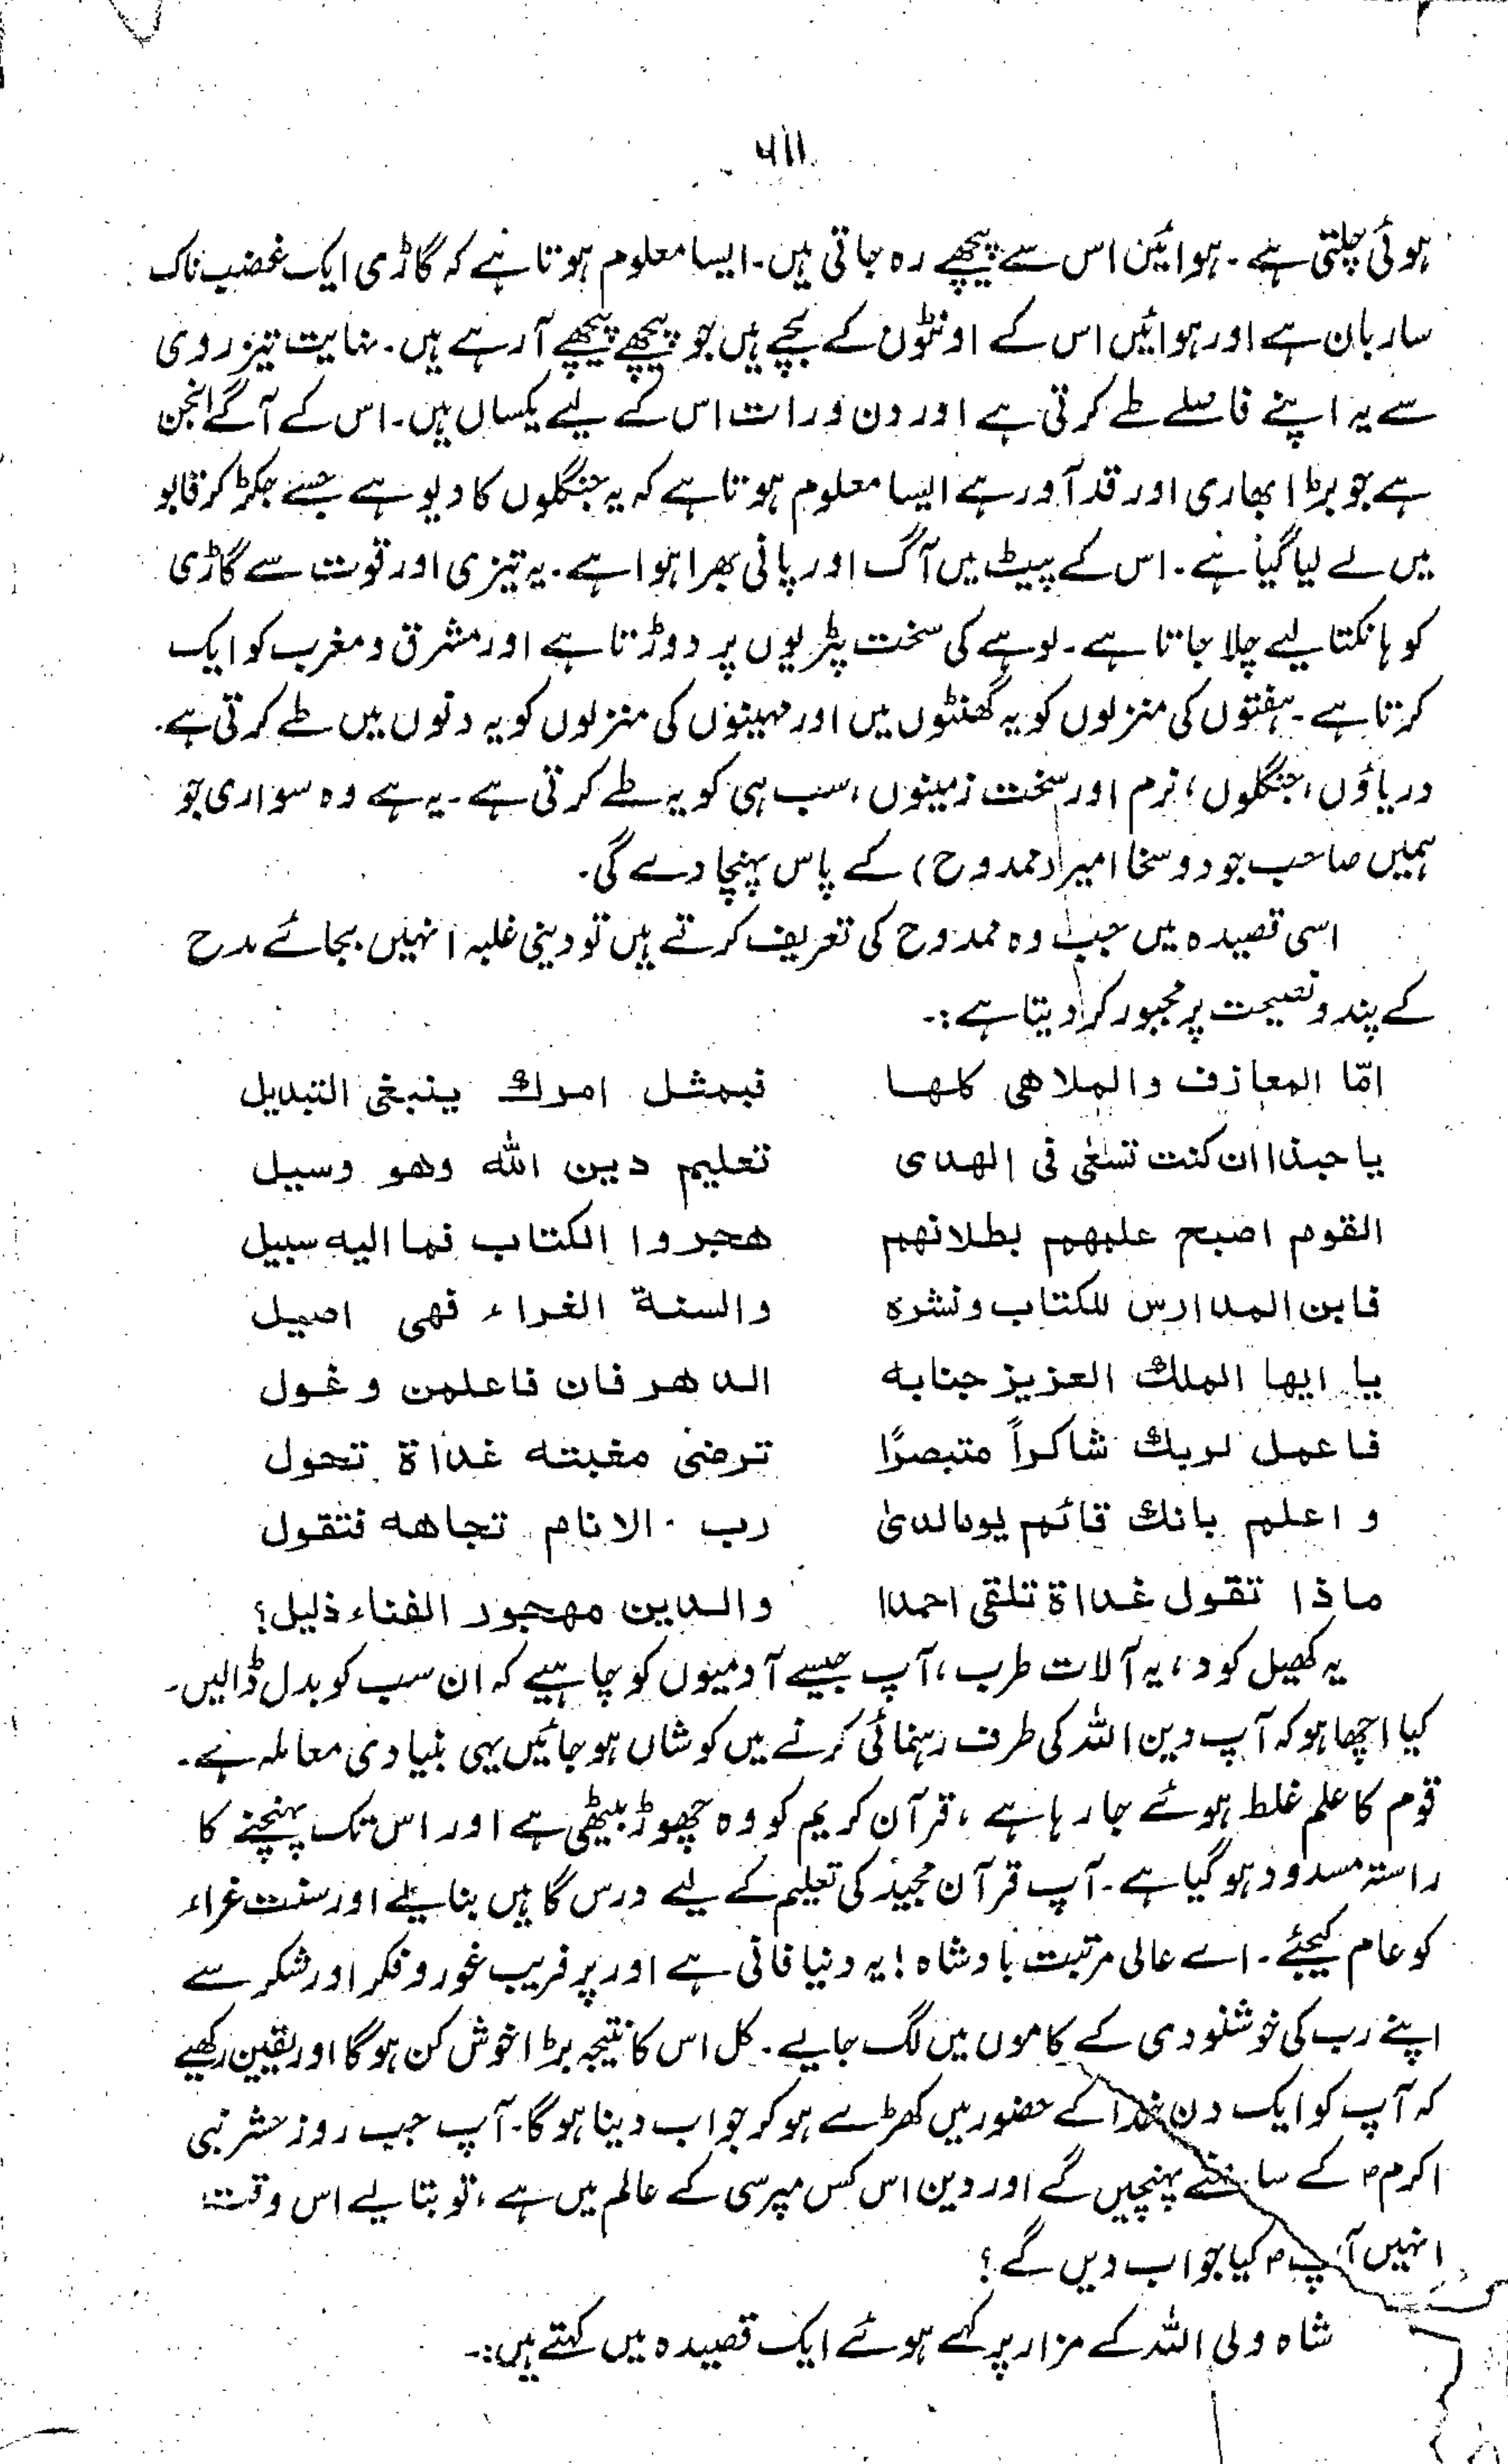 ۵۱۱
ہوئی چلتی ہے۔ ہوائیں اس سے پیچھے رہ جاتی ہیں۔ ایسا معلوم ہوتا ہے کہ گاڑی ایک غضب ناک
ساربان ہے اور ہوائیں اس کے اونٹوں کے بچے ہیں جو پیچھے پیچھے آرہے ہیں۔ نہایت تیز روی
سے یہ اپنے فاصلے طے کرتی ہے اور دن ورات اس کے لیے یکساں ہیں۔ اس کے آگے انجن
ہے جو بڑا بھاری اور قد آور ہے ایسا معلوم ہوتا ہے کہ یہ جنگلوں کا دیو ہے جسے جکڑ کر قابو
میں لے لیا گیا ہے۔ اس کے پیٹ میں آگ اور پانی بھرا ہوا ہے۔ یہ تیزی اور قوت سے گاڑی
کو ہانکتا لیے چلا جاتا ہے۔ لوہے کی سخت پٹریوں پر دوڑتا ہے اور مشرق ومغرب کو ایک
کرتا ہے۔ ہفتوں کی منزلوں کو یہ گھنٹوں میں اور مہینوں کی منزلوں کو یہ دنوں میں طے کرتی ہے۔
دریاؤں، جنگلوں، نرم اور سخت زمینوں، سب ہی کو یہ طے کرتی ہے۔ یہ ہے وہ سواری جو
ہمیں صاحب جود وسخا امیر (ممدوح) کے پاس پہنچا دے گی۔
اسی قصیدہ میں جب وہ ممدوح کی تعریف کرتے ہیں تو دینی غلبہ انہیں بجائے مدح
کے پند ونصیحت پر مجبور کر دیتا ہے:۔
امّا المعازف والملاهی کلها فبمثل امرك ینبغی التبدیل
یا حبذا ان کنت تسعٰی فی الهدی تعلیم دین الله وهو وسیل
القوم اصبح علیهم بطلانهم هجروا الکتاب فما الیه سبیل
فابن المدارس للکتاب ونشره والسنة الغراء فهی اصیل
یا ایها الملك العزیز جنابه الدهر فان فاعلمن وغول
فاعمل لربك شاکراً متبصرًا ترضٰی مغبته غداة تحول
واعلم بانك قائم یوما لدیٰ رب الانام تجاهه فتقول
ماذا تقول غداة تلقی احمدا والدین مهجور الفناء ذلیل؟
یہ کھیل کود، یہ آلات طرب، آپ جیسے آدمیوں کو چاہیے کہ ان سب کو بدل ڈالیں۔
کیا اچھا ہو کہ آپ دین اللہ کی طرف رہنمائی کرنے میں کوشاں ہو جائیں یہی بنیادی معاملہ ہے۔
قوم کا علم غلط ہوئے جا رہا ہے، قرآن کریم کو وہ چھوڑ بیٹھی ہے اور اس تک پہنچنے کا
راستہ مسدود ہو گیا ہے۔ آپ قرآن مجید کی تعلیم کے لیے درس گاہیں بنایئے اور سنت غراء
کو عام کیجئے۔ اے عالی مرتبت بادشاہ! یہ دنیا فانی ہے اور پر فریب غور وفکر اور شکر سے
اپنے رب کی خوشنودی کے کاموں میں لگ جایے۔ کل اس کا نتیجہ بڑا خوش کن ہوگا اور یقین رکھیے
کہ آپ کو ایک دن خدا کے حضور میں کھڑے ہو کر جواب دینا ہوگا۔ آپ جب روز حشر نبی
اکرمؐ کے سامنے پہنچیں گے اور دین اس کس مپرسی کے عالم میں ہے، تو بتایے اس وقت
انہیں آپ کیا جواب دیں گے؟
شاہ ولی اللہ کے مزار پر کہے ہوئے ایک قصیدہ میں کہتے ہیں:۔